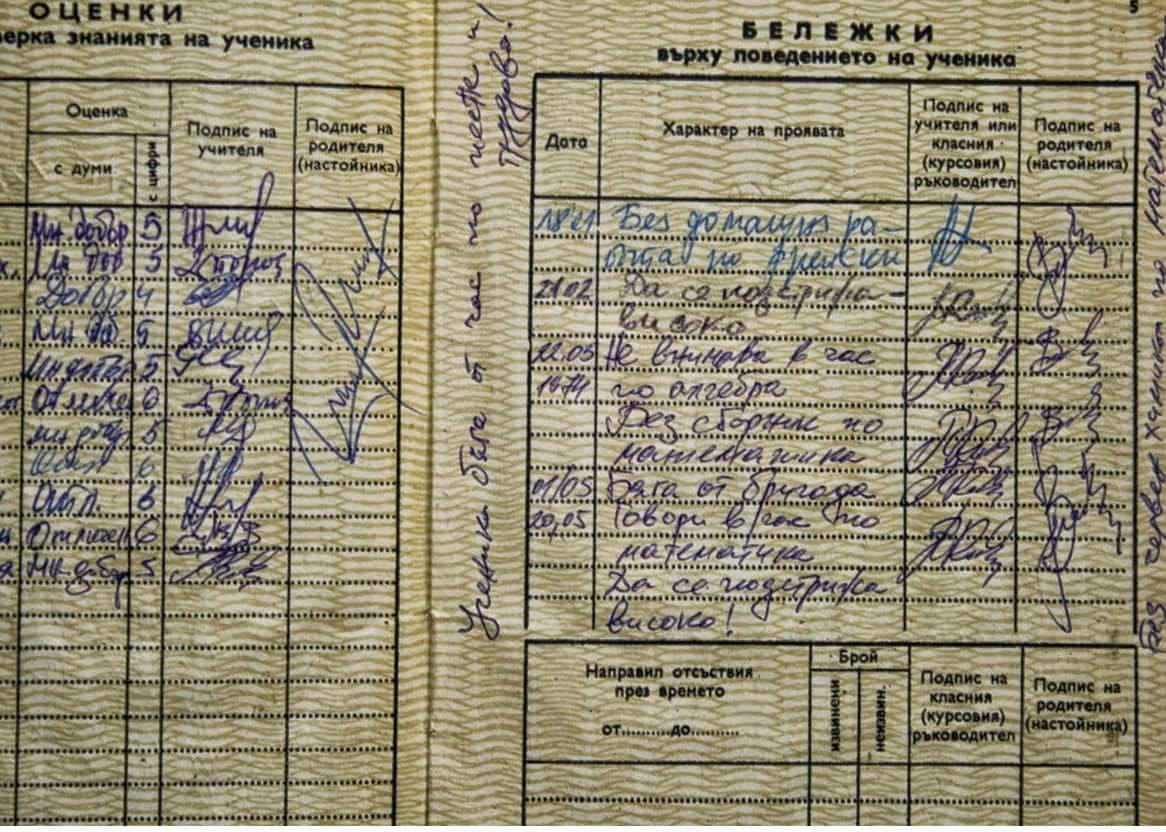 ОЦЕНКИ
верка знанията на ученика
Оценка
с думи
с цифри
Подпис на
учителя
Подпис на
родителя
(настойника)
Мн. добър 5
Мн доб 5
Добър 4
Мн. доб. 5
Мн добър 5
Отличен 6
мн добър 5
6
Отл. 6
Отличен 6
Мн. добър 5
Ученика бяга от час по честк и
трудово!
5
БЕЛЕЖКИ
върху поведението на ученика
Дата
Характер на проявата
Подпис на
учителя или
класния
(курсовия)
ръководител
Подпис на
родителя
(настойника)
Без домашна ра-
бота по френски
21.02 Да се подстрига-
високо
22.03 Не внимава в час
19.04 по алгебра
Без сборник по
математика
01/05 Бяга от бригада
20,05 Говори в час по
математика
Да се подстрига
високо!
Без червен химикал по математика
Направил отсъствия
през времето
от..........до..........
Брой
извинени
неизвин.
Подпис на
класния
(курсовия)
ръководител
Подпис на
родителя
(настойника)